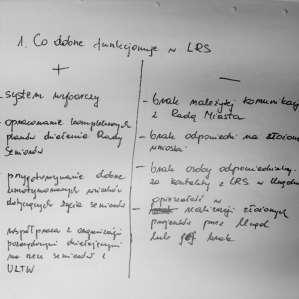 1. Co dobrze funkcjonuje w LRS
+
- system wyborczy
- opracowanie kompleksowych
planów działania Rady
Seniorów
- przygotowywanie dobrze
umotywowanych wniosków
dotyczących życia seniorów
- współpraca z organizacjami
pozarządowymi działającymi
na rzecz seniorów i
ULTW
—
- brak należytej komunikacji
z Radą Miasta
- brak odpowiedzi na złożone
wnioski
- brak osoby odpowiedzialnej
za kontakty z LRS w Urzędzie
opieszałość w
- realizacji złożonych
projektów przez Urząd
lub brak